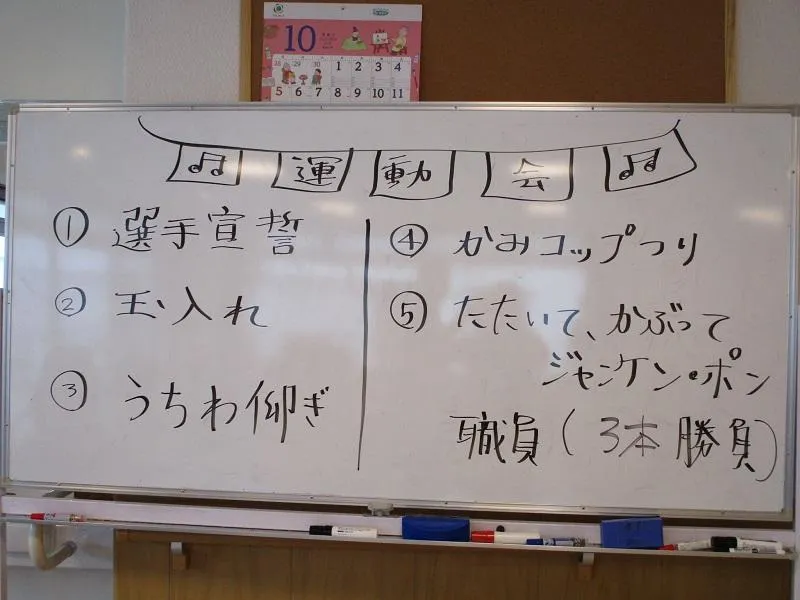 10
28 29 30 1 2 3 4
5 6 7 8 9 10 11
♫ 運動会 ♫
① 選手宣誓
② 玉入れ
③ うちわ仰ぎ
④ かみコップつり
⑤ たたいて、かぶって
ジャンケン・ポン
職員(3本勝負)